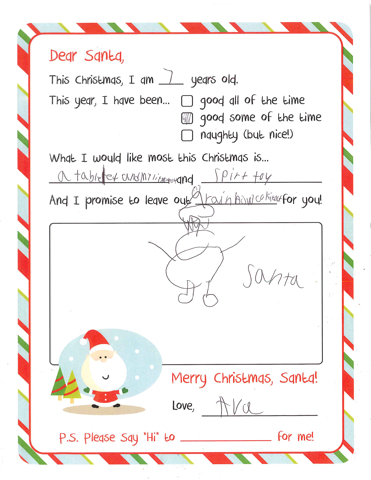 Dear Santa,
This Christmas, I am 7 years old.
This year, I have been... good all of the time
good some of the time
naughty (but nice!)
What I would like most this Christmas is...
a tablet and and spirt toy
And I promise to leave out a rainbow for you!
Santa
Merry Christmas, Santa!
Love, Ava
P.S. Please Say "Hi" to for me!